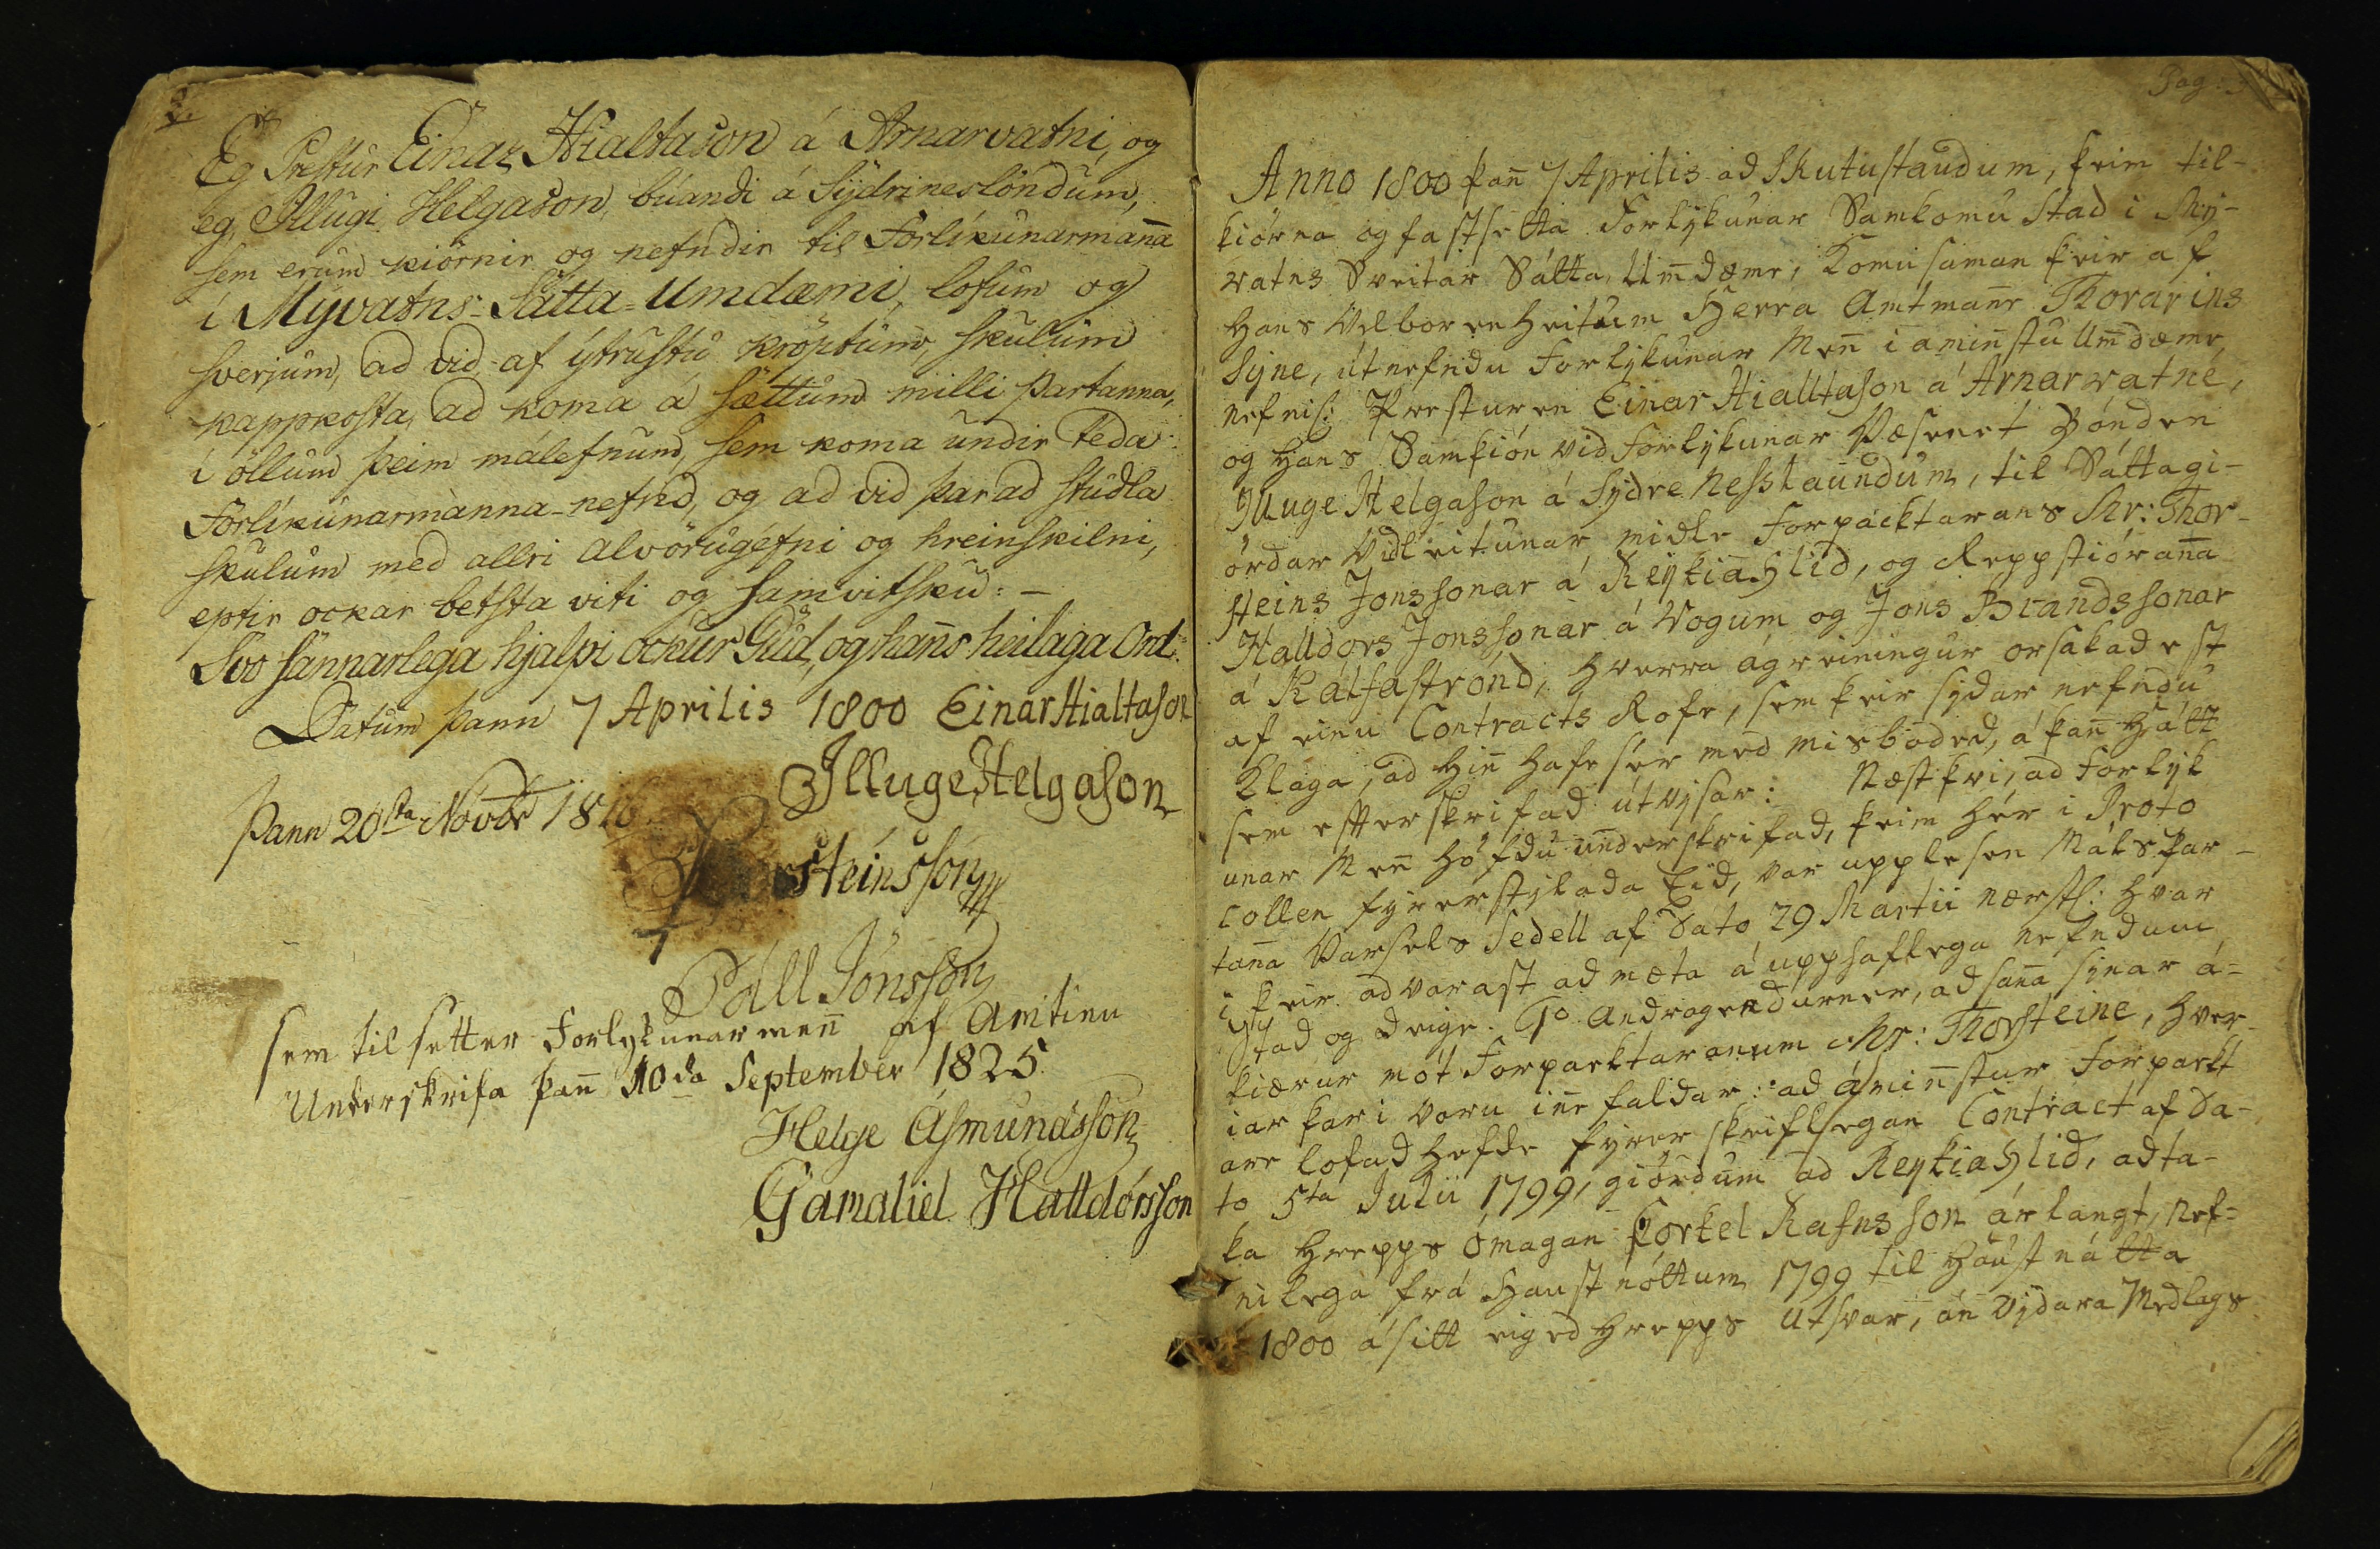 2.
Eg Prestur Einar Hialtason á Arnarvatni, og
eg, Illugi Helgason, búandi á Sydrineslöndum,
sem erum kiörnir og nefndir til Forlíkunarmanna
í Mývatns-Sátta-Umdæmi, lofum og
sverjum, ad vid af ýtrustu kröptum, skulum
kappkosta, ad koma á sættum milli Partanna,
í öllum þeim málefnum, sem koma undir téda
Forlíkunarmanna-nefnd, og ad vid þar ad studla
skulum med allri alvörugéfni og hreinskilni,
eptir ockar betsta viti og samvitsku: –
Svo sannarlega hjalpi ockur Gud, og hans heilaga Ord:
Datum þann 7 Aprilis 1800 Einar Hialtason
Illuge Helgason
Þann 20sta Novbr 1810
steinsson
Páll Jónsson
sem til setter Forlykunar menn af Amtinu
Underskrifa þan̄ 10da September 1825.
Helge Ásmundsson
Gamaliel Halldórsson
Pag: 3
Anno 1800 þan̄ 7 Aprilis ad Skutustaudum, þeim til-
kiörna og fastsetta Forlykunar Samkomu Stad i My-
vatns Sveitar Sátta Um̄dæme, Komu saman þeir af
Hans Velborenheitum Herra Amtman̄e Thorarins
Syne, útnefndu Forlykunar Men̄ i amin̄stu Um̄dæme,
nefnil: Presturen Einar Hialltason á Arnarvatne,
og Hans Samþión vid Forlykunar Væsenet Bónden
Illuge Helgason á Sydre Nesslaundum, til Sáttagi-
ördar Vidleitunar midle Forpacktarans Mr: Thor-
steins Jonssonar á Reykiahlid, og Reppstióran̄a
Halldors Jonssonar á Vogum og Jons Brandssonar
á Kálfaströnd, hverra ágreiningur orsakadest
af einu Contracts Rofe, sem þeir sydar nefndu
klaga, ad Hin̄ hafe sér med misboded, á þan̄ hátt
sem efterskrifad útvysar: Næst þvi, ad Forlyk
unar Men̄ höfdu underskrifad, þeim hér i Proto
collen fyrerstylada Eid, var upplesen Máls Par-
tan̄a Varsels Sedell af Dato 29 Martii nærstl: hvar
i þeir advarast ad mæta á upphaflega nefndum
Stad og Deige. 1o Andragendurner, ad san̄a synar á-
kiærur mót Forpacktaranum Mr: Thorsteine, hver-
iar þar i voru in̄e faldar: ad ámin̄stur Forpackt
are lofad hefde fyrer skriflegan Contract af Da-
to 5ta Julii 1799, giördum ad Reykiahlid, ad ta-
ka Hrepps ómagan Þorkel Rafnsson ár langt, nef-
nilega frá Haustnóttum 1799 til Haustnátta
1800 á sitt eiged Hrepps Utsvar, án Vydara Medlags